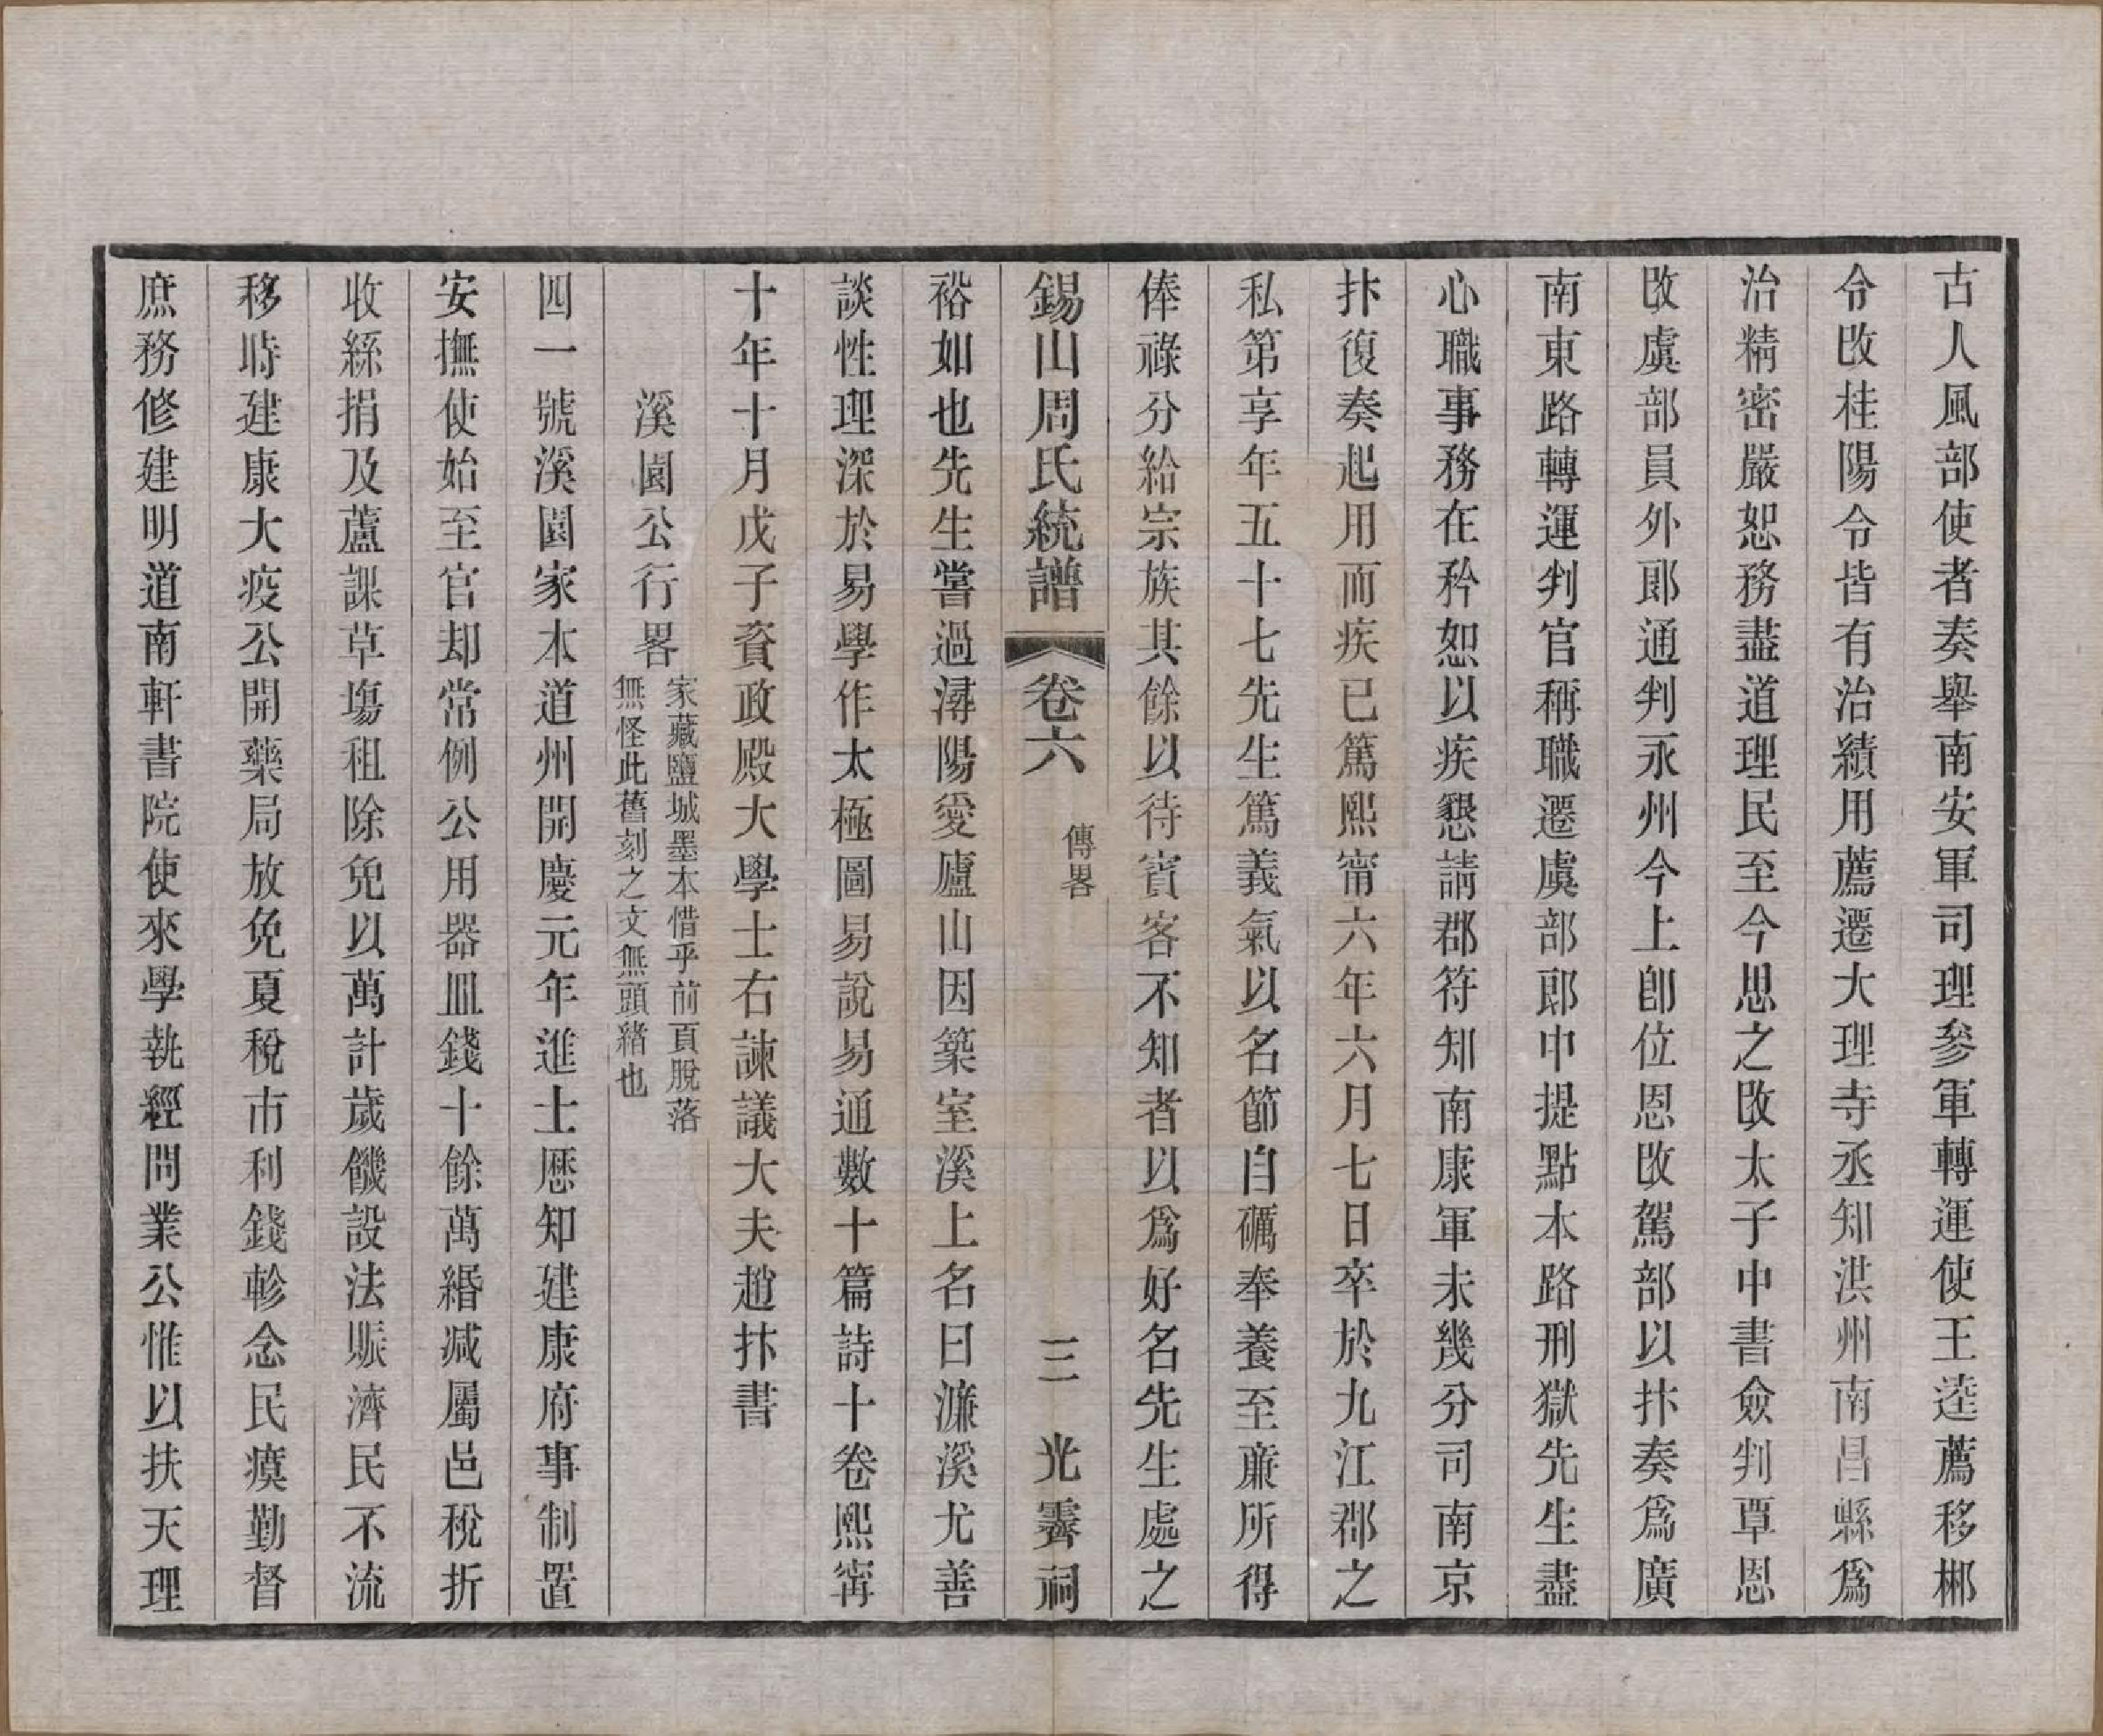 古人風部使者奏舉南安軍司理參軍轉運使王逵薦移郴
令改桂陽令皆有治績用薦遷大理寺丞知洪州南昌縣爲
治精密嚴恕務盡道理民至今思之改太子中書僉判覃恩
改虞部員外郎通判永州今上卽位恩改駕部以抃奏爲廣
南東路轉運判官稱職遷虞部郎中提點本路刑獄先生盡
心職事務在矜恕以疾懇請郡符知南康軍未幾分司南京
抃復奏起用而疾已篤熙甯六年六月七日卒於九江郡之
私第享年五十七先生篤義氣以名節自礪奉養至廉所得
俸祿分給宗族其餘以待賓客不知者以爲好名先生處之
錫山周氏統譜 卷六 傳畧 三 光霽祠
裕如也先生嘗過潯陽愛廬山因築室溪上名曰濂溪尤善
談性理深於易學作太極圖易說易通數十篇詩十卷熙寗
十年十月戊子資政殿大學士右諫議大夫趙抃書
溪園公行畧 家藏鹽城墨本惜乎前頁脫落
無怪此舊刻之文無頭緒也
四一號溪園家本道州開慶元年進士歷知建康府事制置
安撫使始至官却常例公用器皿錢十餘萬緡減屬邑稅折
收絲捐及蘆課草塲租除免以萬計歲饑設法賑濟民不流
移時建康大疫公開藥局放免夏稅市利錢軫念民瘼勤督
庶務修建明道南軒書院使來學執經問業公惟以扶天理